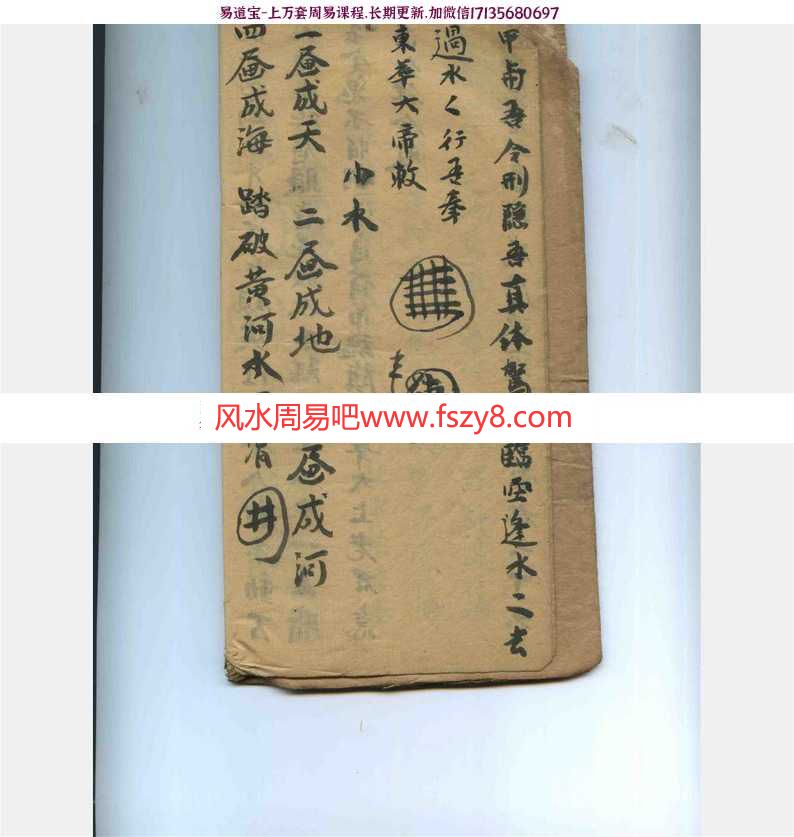 易道宝-上万套周易课程.长期更新.加微信17135680697
甲兵吾令刑隐吾真体驚
臨雲逢水二去
過水く行吾奉
東華大帝敕
小水
一畫成天 二畫成地
畫成河
四畫成海 踏破黄河水
井
风水周易吧www.fszy8.com